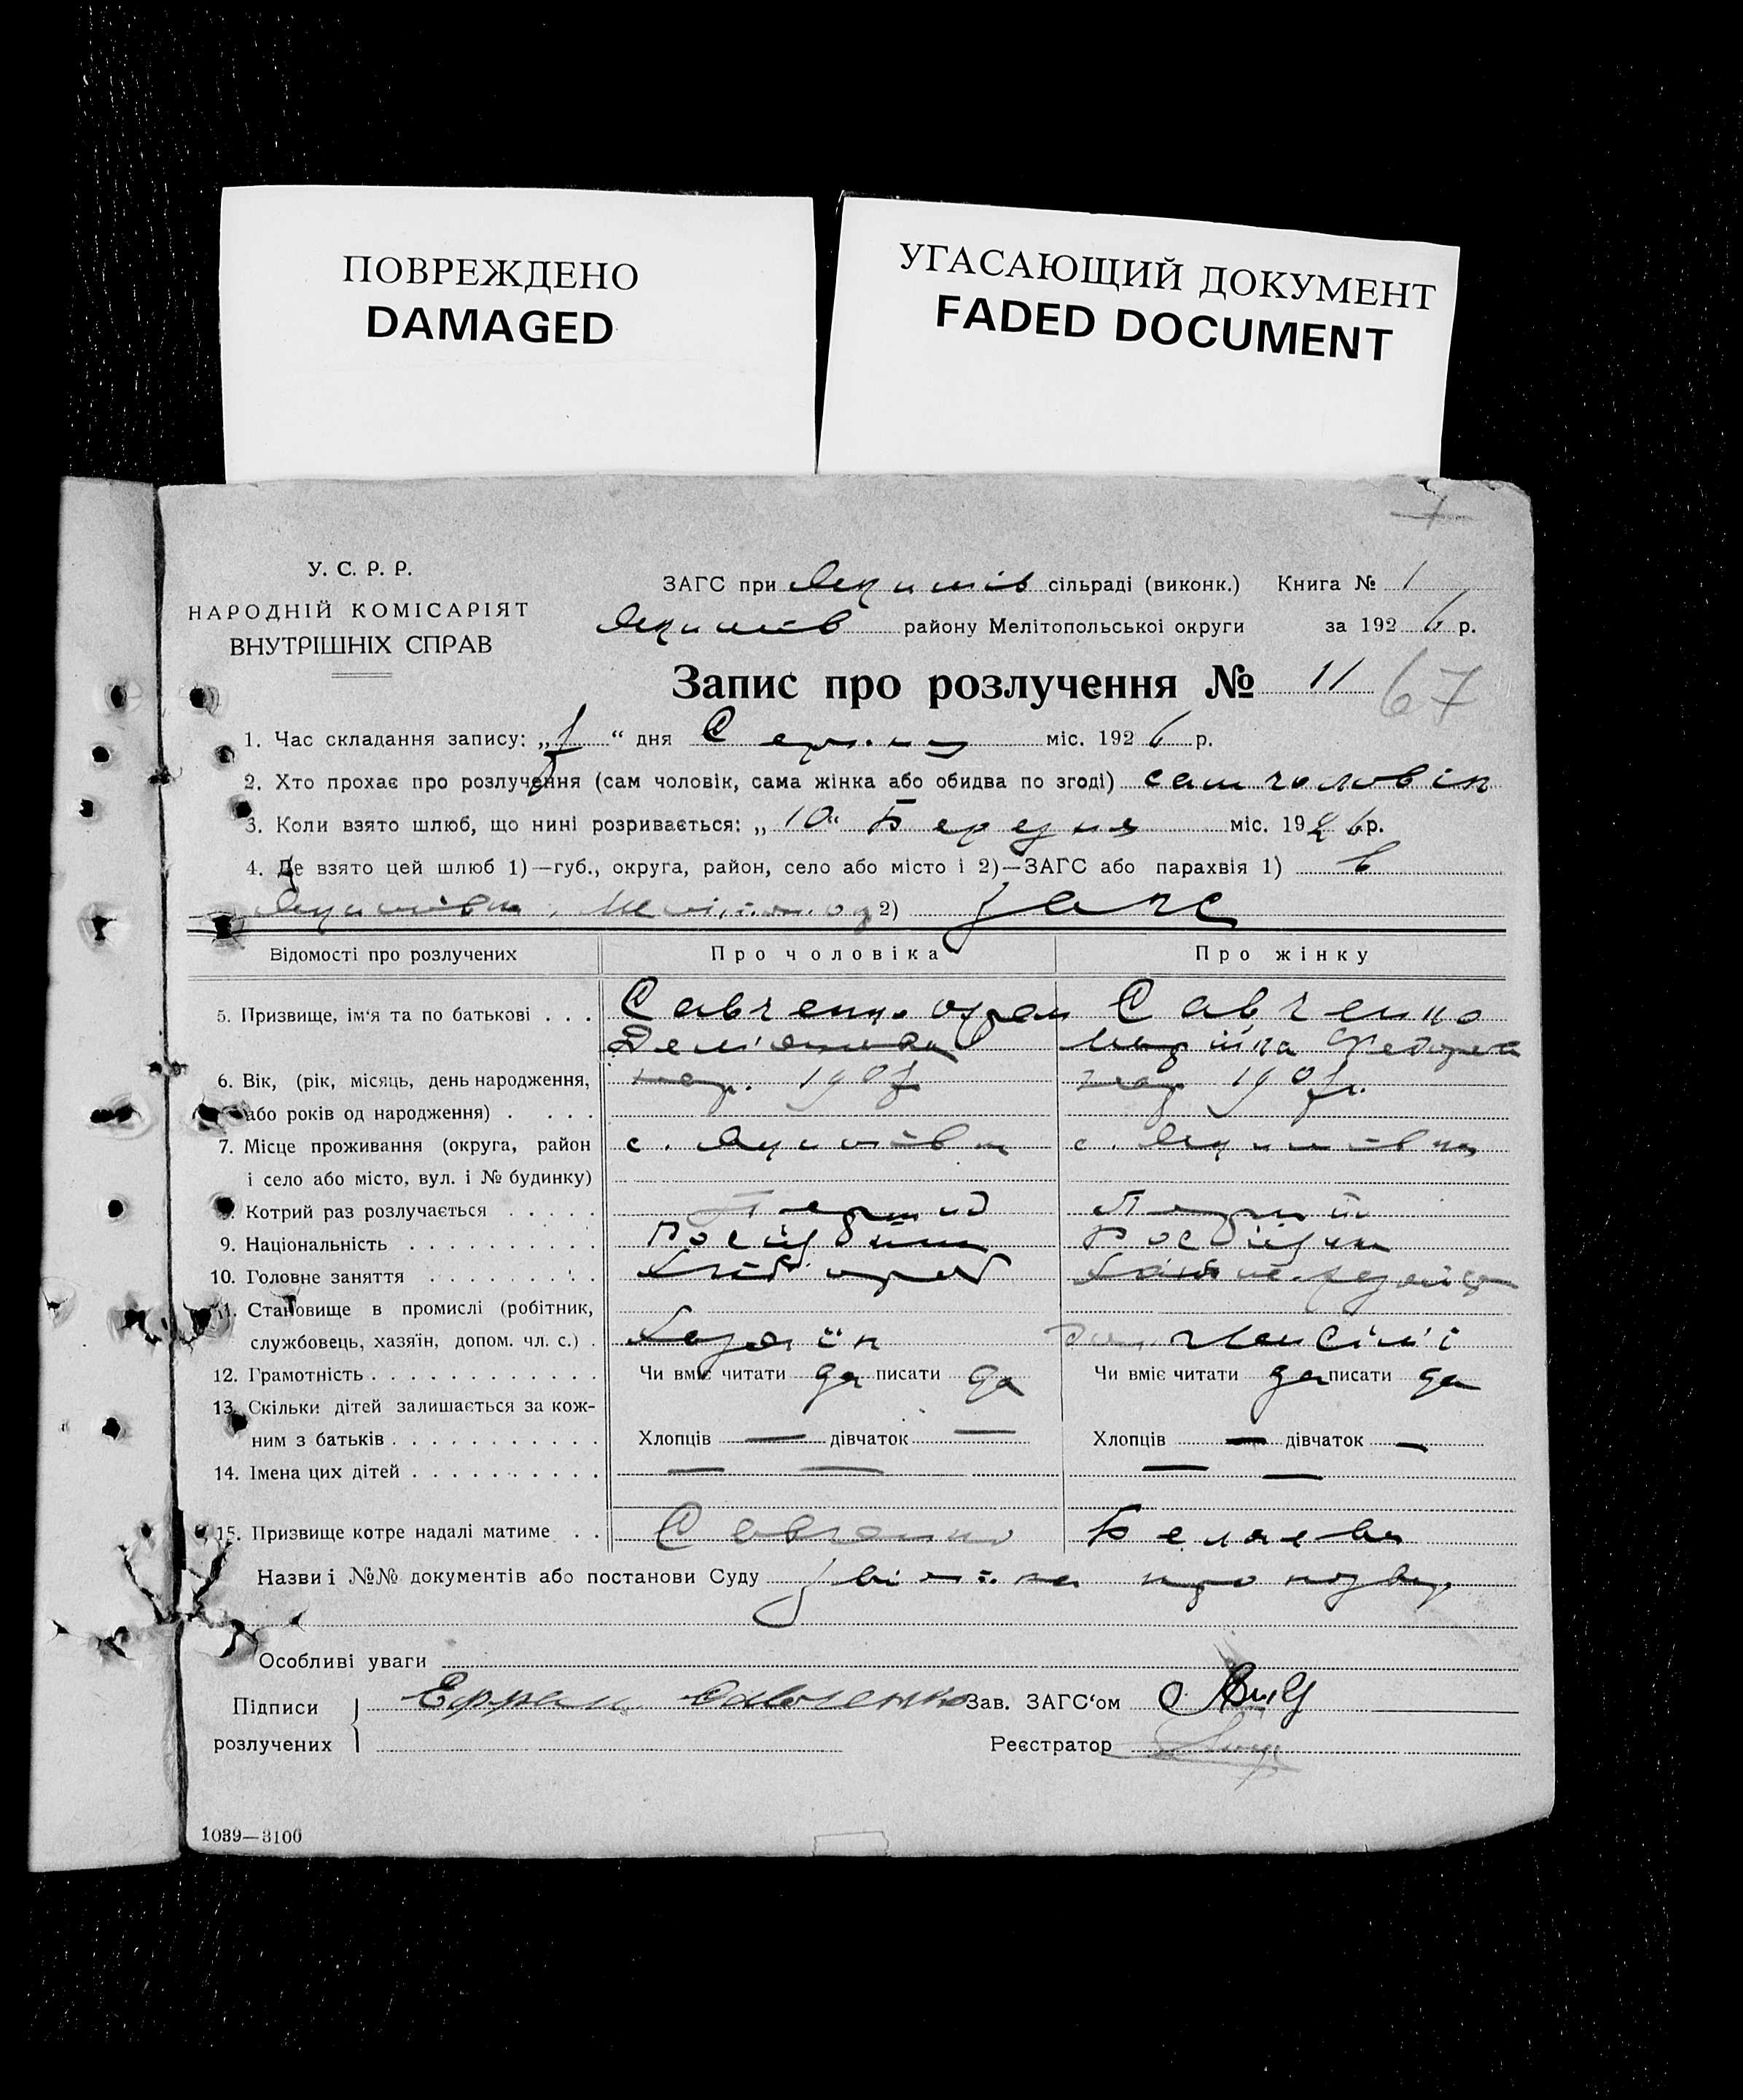 ПОВРЕЖДЕНО
DAMAGED
УГАСАЮЩИЙ ДОКУМЕНТ
FADED DOCUMENT
7
У. С. Р. Р.
НАРОДНІЙ КОМІСАРІЯТ
ВНУТРІШНІХ СПРАВ
ЗАГС при Якимів сільраді (виконк.) Книга № 1
Якимів району Мелітопольської округи за 1926 р.
Запис про розлучення № 11 67
1. Час складання запису: „ “ дня Серпня міс. 1926 р.
2. Хто прохає про розлучення (сам чоловік, сама жінка або обидва по згоді) сам чоловік
3. Коли взято шлюб, що нині розривається: „10“ Березня міс. 1926 р.
4. Де взято цей шлюб 1)—губ., округа, район, село або місто і 2)—ЗАГС або парахвія 1) в
Якимівка, 2) Загс
Відомості про розлучених
Про чоловіка
Про жінку
5. Призвище, ім‘я та по батькові . . . Савченко Савченко
Марійка
6. Вік, (рік, місяць, день народження, нар. 190 нар. 190
або років од народження) . . . .
7. Місце проживання (округа, район с. Якимівка с. Якимівка
і село або місто, вул. і № будинку)
Котрий раз розлучається . . . . . Перший Перший
9. Національність . . . . . . . . . .
10. Головне заняття . . . . . . . . Хлібороб
11. Становище в промислі (робітник,
службовець, хазяїн, допом. чл. с.) . Хазяїн доп. член сім'ї
12. Грамотність . . . . . . . . . . . . Чи вміє читати да писати да Чи вміє читати да писати да
13. Скільки дітей залишається за кож-
ним з батьків . . . . . . . . . . . Хлопців — дівчаток — Хлопців — дівчаток —
14. Імена цих дітей . . . . . . . . . . — — — —
15. Призвище котре надалі матиме . . Савченко Беляева
Назви і №№ документів або постанови Суду про
Особливі уваги
Підписи
розлучених
Савченко
Зав. ЗАГС‘ом
Реєстратор
1039—3100